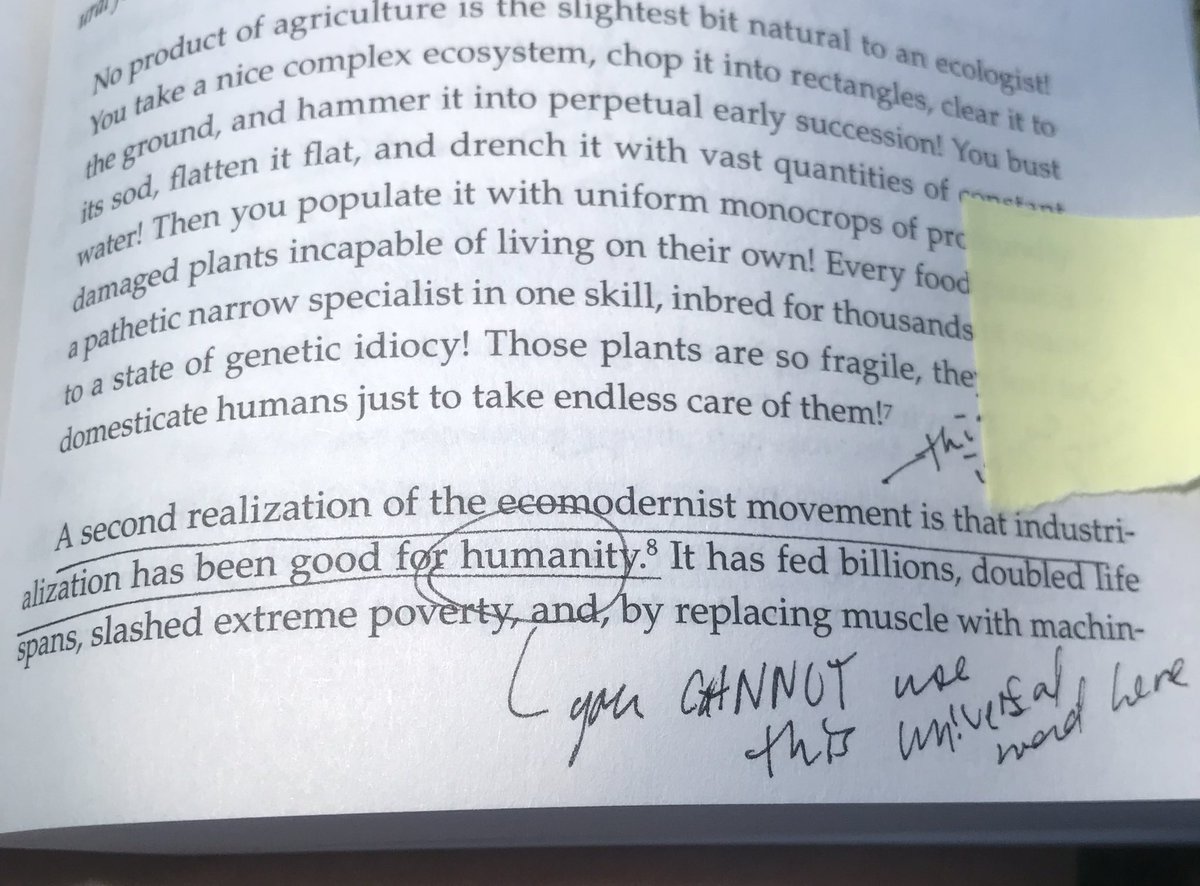 No product of agriculture is the slightest bit natural to an ecologist!
You take a nice complex ecosystem, chop it into rectangles, clear it to
the ground, and hammer it into perpetual early succession! You bust
its sod, flatten it flat, and drench it with vast quantities of constant
water! Then you populate it with uniform monocrops of
damaged plants incapable of living on their own! Every food
a pathetic narrow specialist in one skill, inbred for thousands
to a state of genetic idiocy! Those plants are so fragile,
domesticate humans just to take endless care of them!7
A second realization of the ecomodernist movement is that industri-
alization has been good for humanity.8 It has fed billions, doubled life
spans, slashed extreme poverty, and, by replacing muscle with machin-
you CANNOT use
this universal
word here